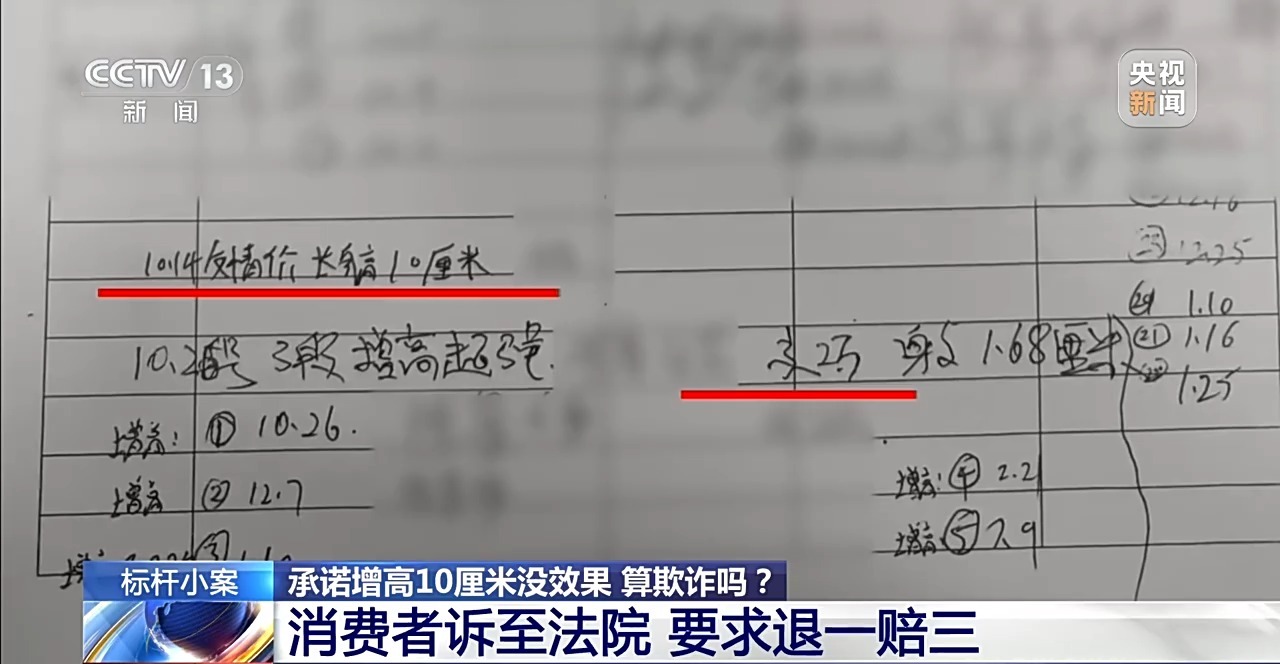 CCTV 13
新闻
央视
新闻
长高10厘米
12.25
10.2 3段 增高超强
身高 1.68厘米
㉑ 1.16
1.10
1.25
增高：① 10.26.
增高 ② 12.7
增高：④ 2.2
增高：⑤ 7.9
增高 ③
标杆小案
承诺增高10厘米没效果 算欺诈吗？
消费者诉至法院 要求退一赔三